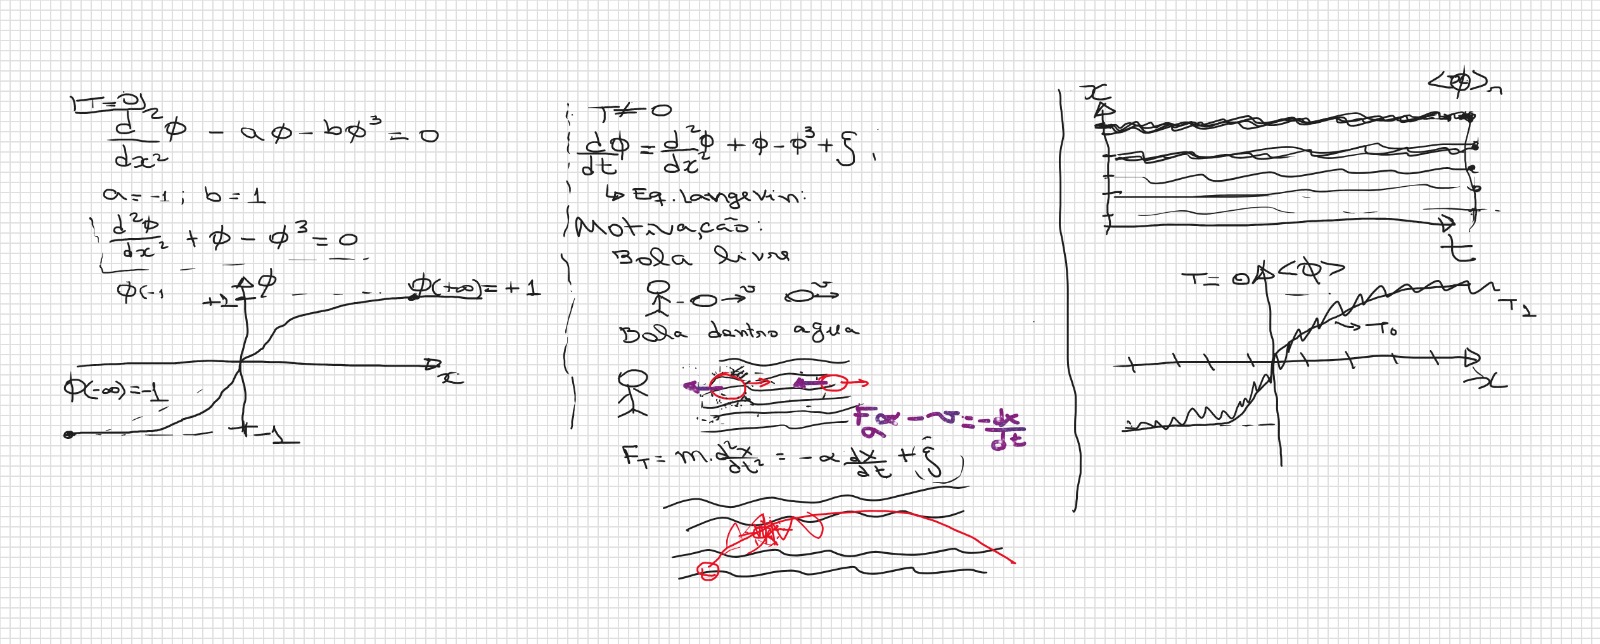 T=0
d²/dx² φ - aφ - bφ³ = 0
a = -1 ; b = 1
d²φ/dx² + φ - φ³ = 0
φ(-1
+1
φ
φ(+∞) = +1
x
φ(-∞) = -1
-1
T ≠ 0
dφ/dt = d²φ/dx² + φ - φ³ + ξ,
↳ Eq. Langevin:
Motivação:
Bola livre
v
v
Bola dentro agua
F_a α - v = -dx/dt
F_T = m. d²x/dt² = -α dx/dt + ξ
<φ>_n
x
t
T = 0
<φ>
T₁
→ T₀
x